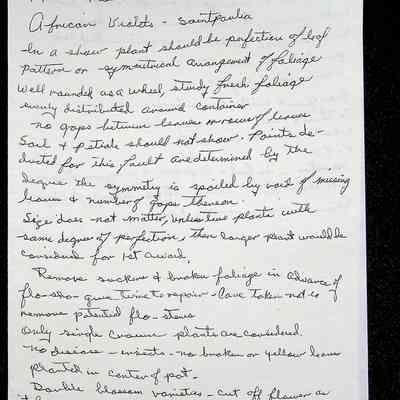 African Violets - Saintpaulia
In a show plant should be perfection of leaf
pattern or symmetrical arrangement of foliage
Well rounded as a wheel, sturdy fresh foliage
evenly distributed around container
no gaps between leaves or rows of leaves
Soil & petiole should not show. Points de-
ducted for this fault are determined by the
degree the symmetry is spoiled by void of missing
leaves & number of gaps thereon.
Size does not matter, unless two plants with
same degree of perfection, then larger plant would be
considered for 1st award.
Remove suckers & broken foliage in advance of
flo-sho- give time to repair - Care taken not to
remove flo-stems
Only single crown plants are considered.
no disease - insects - no broken or yellow leaves
planted in center of pot.
Double blossom varieties - cut off flower as